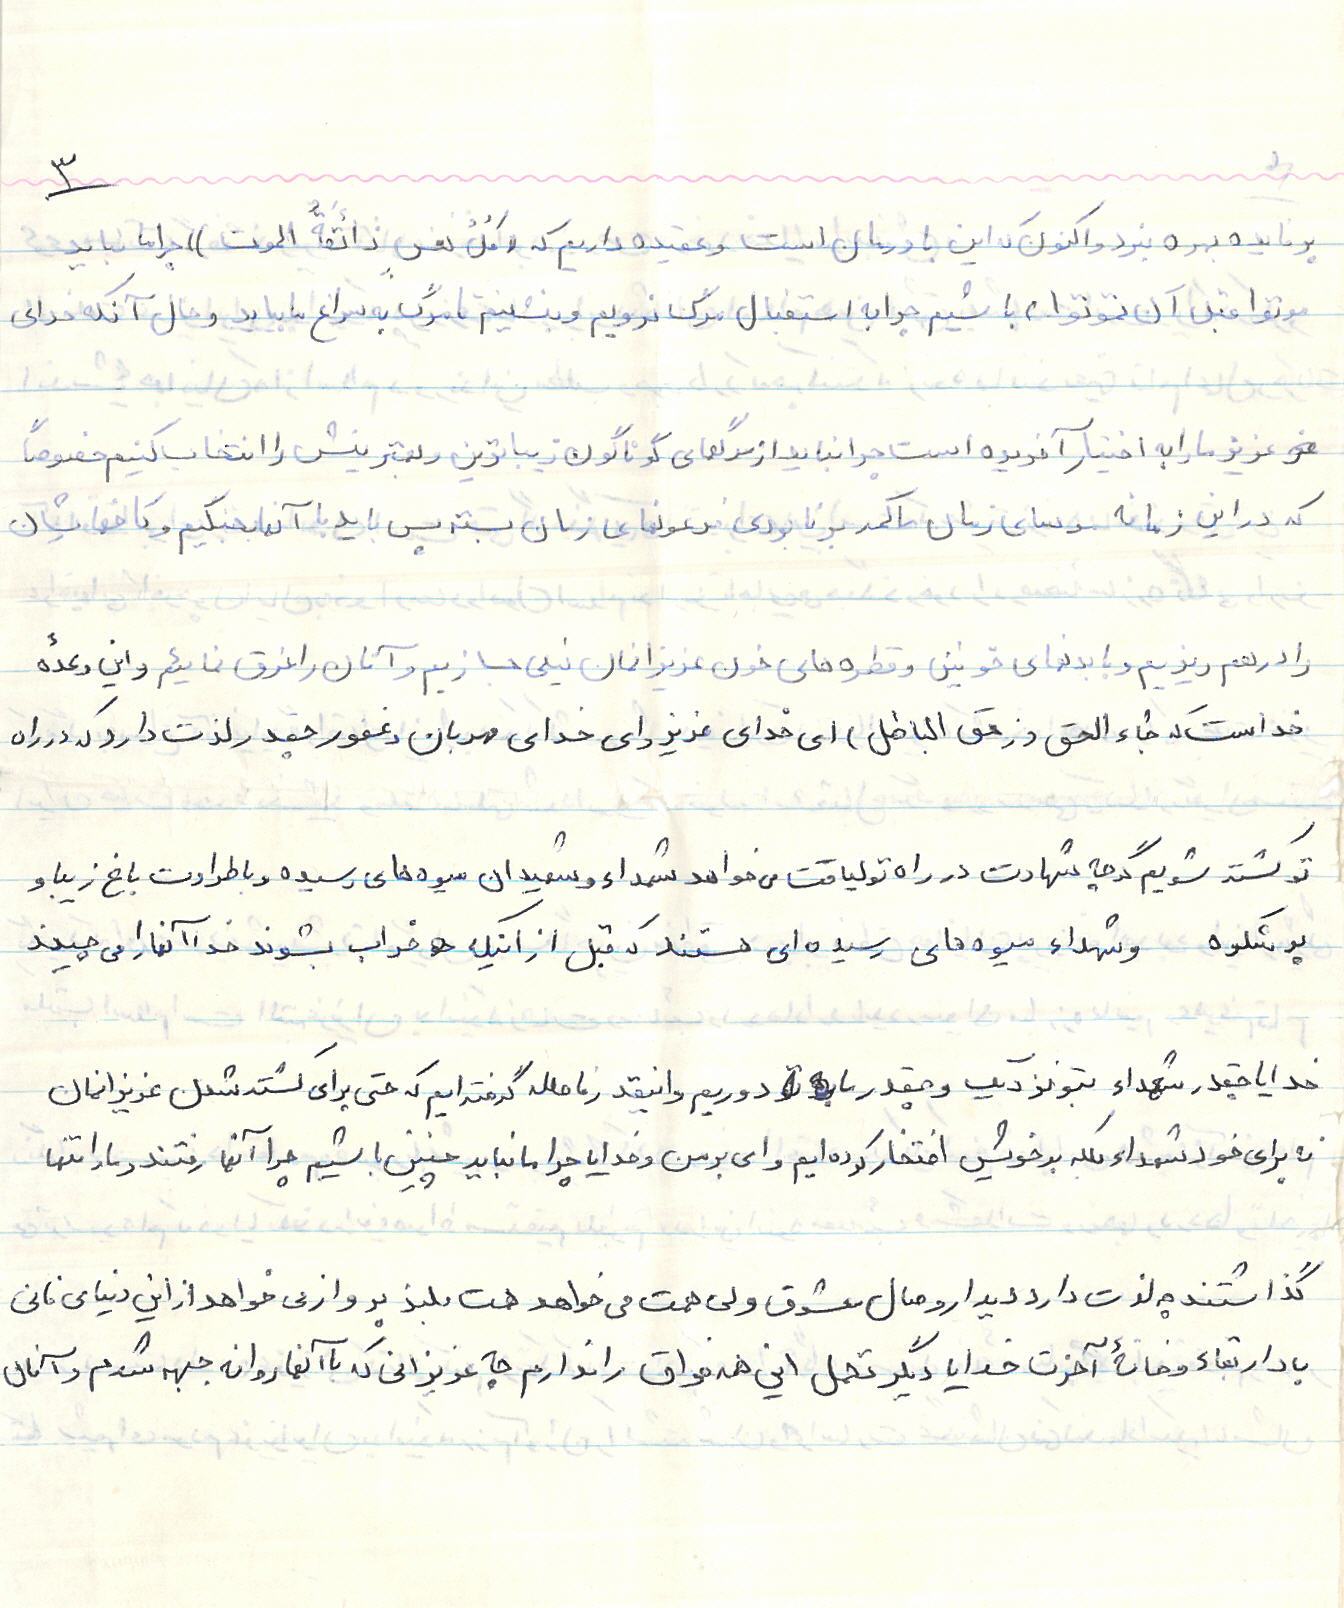 ۳
پرفایده بهره نبرد و اکنون که این باورمان است و عقیده داریم که «کُلُّ نفسٍ ذائقةُ الموت» چرا ما نباید
موتوا قبل آن تموتوا، باشیم چرا به استقبال مرگ نرویم و بنشینیم تا مرگ به سراغ ما بیاید و حال آنکه خدای
عزیز ما را به اختیار آفریده است چرا نباید از مرگهای گوناگون زیباترین و بهترینش را انتخاب کنیم خصوصاً
که در این زمانه موسای زمان کمر بر نابودی فرعونهای زمان بسته پس باید با آنها بجنگیم و کاخهایشان
را درهم ریزیم و با بدنهای خونین و قطره های خون عزیزانمان نیلی بسازیم و آنان را غرق نماییم و این وعدهٔ
خداست که جاء الحق و زهق الباطل) ای خدای عزیز و ای خدای مهربان و غفور چقدر لذت دارد که در راه
تو کشته شویم گرچه شهادت در راه تو لیاقت می خواهد شهداء و شهیدان میوه های رسیده و با طراوت باغ زیبا و
پر شکوه وشهداء میوه های رسیده ای هستند که قبل از اینکه خراب بشوند خدا آنها را می چیند
خدایا چقدر شهداء بتو نزدیک و چقدر ما به تو دوریم و اینقدر فاصله گرفته ایم که حتی برای کشته شدن عزیزانمان
نه برای خود شهداء بلکه بر خویش افتخار کرده ایم وای بر من و خدایا چرا ما نباید چنین باشیم چرا آنها رفتند و ما را تنها
گذاشتند چه لذت دارد دیدار و وصال معشوق ولی همت می خواهد همت بلند پرواز می خواهد از این دنیای فانی
با دار بقاء و خانهٔ آخرت خدایا دیگر تحمل این همه فراق را ندارم چه عزیزانی که با آنها روانه جبهه شدم و آنان